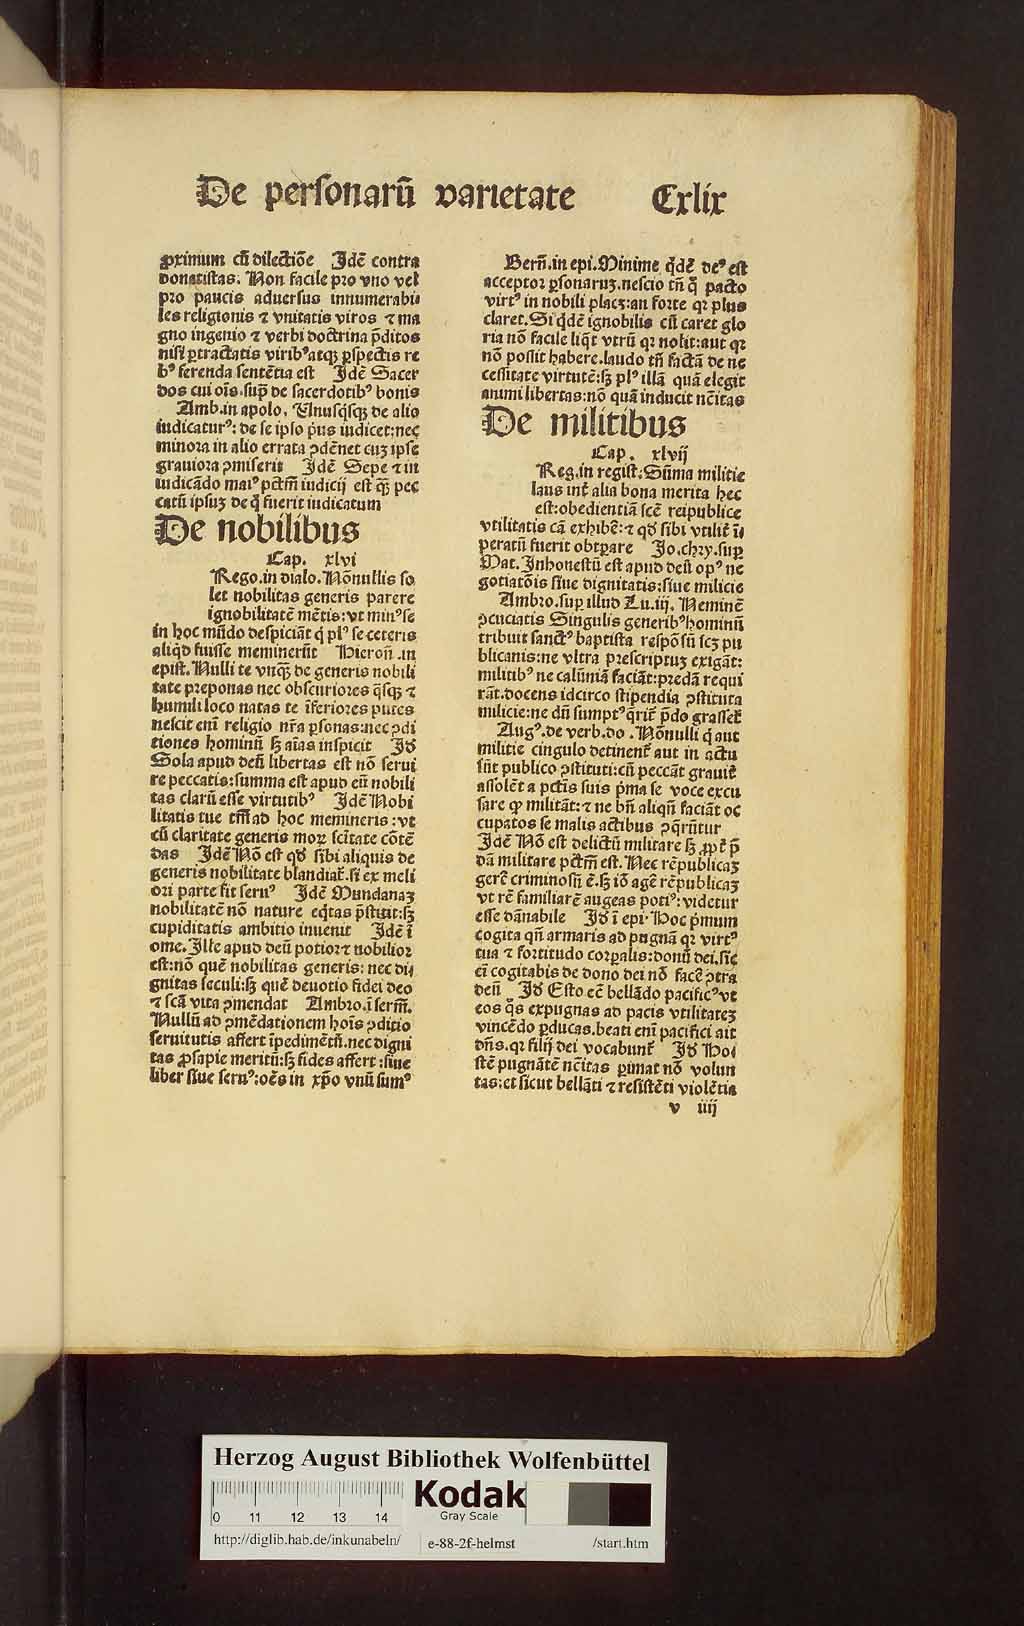 De personarū varietate Cxlix
ꝓximum cū dilectiōe Jdē contra
donatistas. Non facile pro vno vel
pro paucis aduersus innumerabi
les religionis ⁊ vnitatis viros ⁊ ma
gno ingenio ⁊ verbi doctrina p̄ditos
nisi ꝑtractatis viribꝰ atqꝫ ꝑspectis re
bꝰ ferenda sentētia est Jdē Sacer
dos cui oīs. supͣ de sacerdotibꝰ bonis
Amb. in apolo. Unusqͥsqꝫ de alio
iudicaturꝰ: de se ipso pͥus iudicet: nec
minora in alio errata ꝯdēnet cuꝫ ipse
grauiora ꝯmiserit Jdē Sepe ⁊ in
iudicādo maiꝰ pctm̄ iudicij est qͣꝫ pec
catū ipsuꝫ de qͦ fuerit iudicatum
De nobilibus
Cap. xlvi
Rego. in dialo. Nōnullis so
let nobilitas generis parere
ignobilitatē mētis: vt minꝰ se
in hoc mūdo despiciāt qͥ plꝰ se ceteris
aliqͥd fuisse meminerūt Hieron̄. in
epist. Nulli te vnqͣꝫ de generis nobili
tate preponas nec obscuriores qͣsqꝫ ⁊
humili loco natas te īferiores putes
nescit enī religio nr̄a ꝑsonas: nec ꝯdi
tiones hominū sꝫ aīas inspicit Jd̄
Sola apud deū libertas est nō serui
re peccatis: summa est apud eū nobili
tas clarū esse virtutibꝰ Jdē Nobi
litatis tue tm̄ ad hoc memineris: vt
cū claritate generis moꝝ sc̄itate cōtē
das Jdē Nō est qd̓ sibi aliquis de
generis nobilitate blandiat᷑. si ex meli
ori parte sit seruꝰ Jdē Mundanaꝫ
nobilitatē nō nature eqͥtas p̄stitit: sꝫ
cupiditatis ambitio inuenit Jdē ī
ome. Jlle apud deū potior ⁊ nobilior
est: nō quē nobilitas generis: nec di
gnitas seculi: sꝫ quē deuotio fidei deo
⁊ scā vita ꝯmendat Ambro. ī serm̄.
Nullū ad ꝯmēdationem hoīs ꝯditio
seruitutis affert īpedimētū. nec digni
tas ꝓsapie meritū: sꝫ fides affert: siue
liber siue seruꝰ: oēs in xp̄o vnū sumꝰ
Bern̄. in epi. Minime qͥdē deꝰ est
acceptor ꝑsonaruꝫ. nescio tn̄ qͦ pacto
virtꝰ in nobili placꝫ: an forte qꝛ plus
claret. Si qͥdē ignobilis cū caret glo
ria nō facile liqͣt vtrū qꝛ nolit: aut qꝛ
nō possit habere. laudo tn̄ factā de ne
cessitate virtutē: sꝫ plꝰ illā quā elegit
animi libertas: nō quā inducit nc̄itas
De militibus
Cap. xlvij
Reg. in regist. Sūma militie
laus int᷑ alia bona merita hec
est: obedientiā scē reipublice
vtilitatis cā exhibē: ⁊ qd̓ sibi vtilit᷑ ī
peratū fuerit obtꝑare Jo. chry. suꝑ
Mat. Jnhonestū est apud deū opꝰ ne
gotiatōis siue dignitatis: siue milicie
Ambro. suꝑ illud Lu. iij. Neminē
ꝯcuciatis Singulis generibꝰ hominū
tribuit sanctꝰ baptista respōsū scꝫ pu
blicanis: ne vltra prescriptuꝫ exigāt:
militibꝰ ne calūniā faciāt: predā requi
rāt. docens idcirco stipendia ꝯstituta
milicie: ne dū sumptꝰ qͥrit᷑ p̄do grasset᷑
Augꝰ. de verb. do. Nōnulli qͥ aut
militie cingulo detinent᷑ aut in actu
sūt publico ꝯstituti: cū peccāt grauit᷑
assolēt a pctīs suis pͥma se voce excu
sare qꝙ militāt: ⁊ ne bn̄ aliqn̄ faciāt oc
cupatos se malis actibus ꝯqͥrūtur
Jdē Nō est delictū militare sꝫ ꝓpt᷑ p̄
dā militare pctm̄ est. Nec rēpublicaꝫ
gerē criminosū ē. sꝫ iō agē rēpublicaꝫ
vt rē familiarē augeas potiꝰ: videtur
esse dānabile Jd̄ ī epi. Hoc pͥmum
cogita qn̄ armaris ad pugnā qꝛ virtꝰ
tua ⁊ fortitudo corꝑalis: donū dei. sic
eī cogitabis de dono dei nō facē ꝯtra
deū Jd̄ Esto eē bellādo pacificꝰ vt
eos qͦs expugnas ad pacis vtilitateꝫ
vincēdo ꝑducas. beati enī pacifici ait
dn̄s. qꝛ filij dei vocabunt᷑ Jd̄ Ho
stē pugnātē nc̄itas ꝑimat nō volun
tas: et sicut bellāti ⁊ resistēti violētia
v iiij
Herzog August Bibliothek Wolfenbüttel
0 11 12 13 14
Kodak
Gray Scale
http://diglib.hab.de/inkunabeln/ e-88-2f-helmst /start.htm